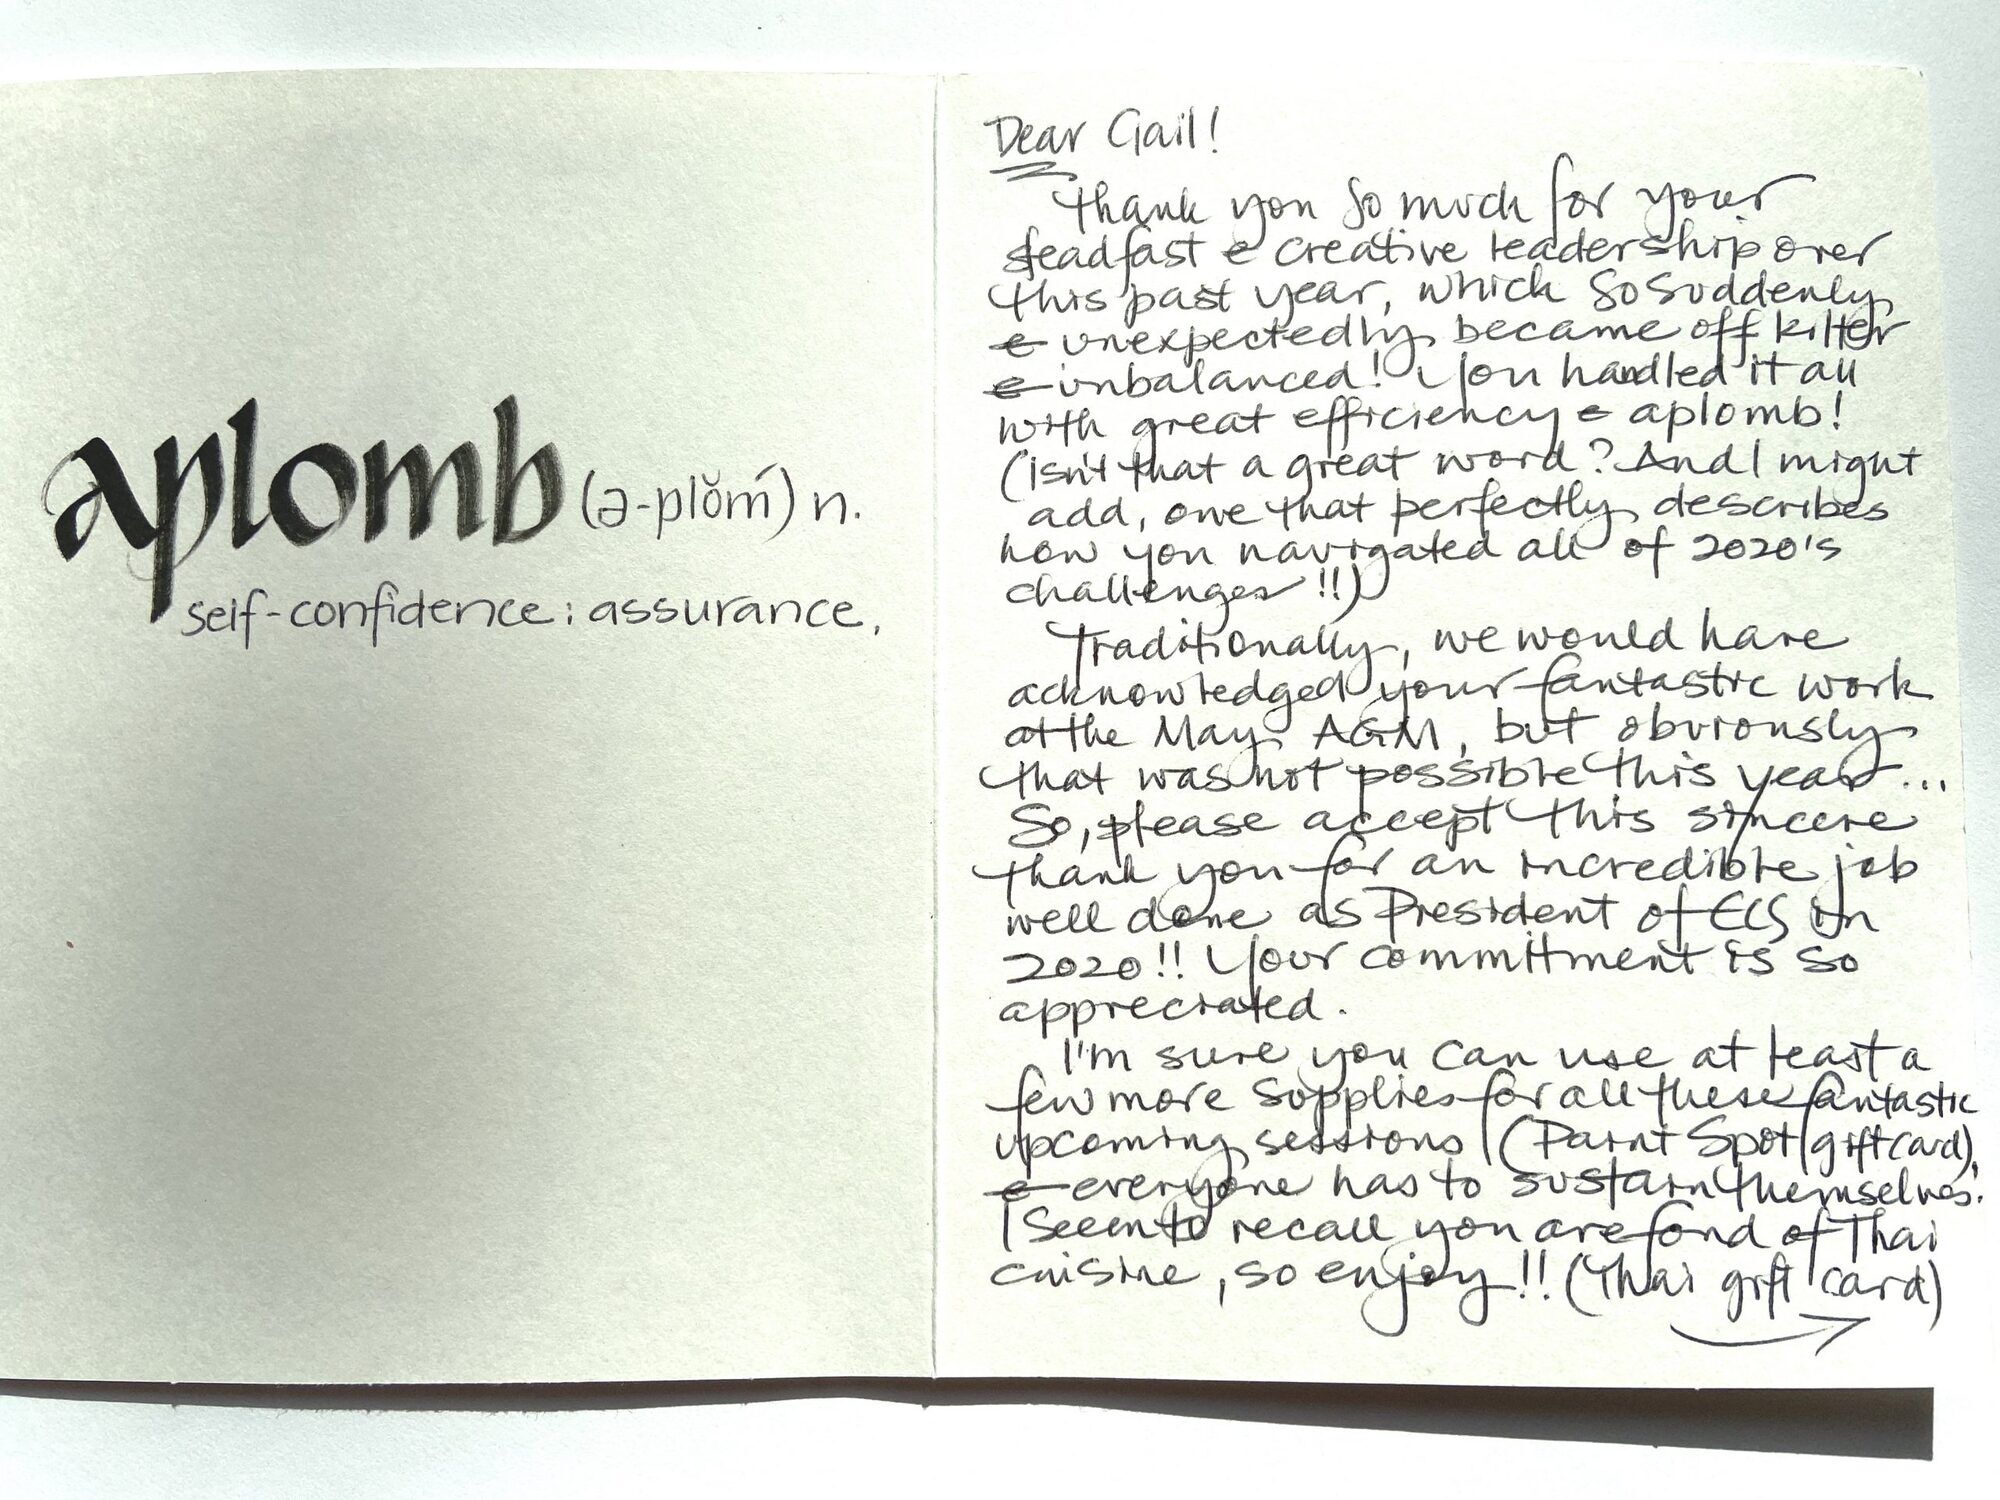 aplomb (ə-plŏm´) n.
self-confidence; assurance.
Dear Gail!
Thank you so much for your
steadfast & creative leadership over
this past year, which so suddenly
& unexpectedly became off kilter
& unbalanced! You handled it all
with great efficiency & aplomb!
(isn't that a great word? And I might
add, one that perfectly describes
how you navigated all of 2020's
challenges!!)
Traditionally, we would have
acknowledged your fantastic work
at the May AGM, but obviously
that was not possible this year...
So, please accept this sincere
thank you for an incredible job
well done as President of ECS in
2020!! Your commitment is so
appreciated.
I'm sure you can use at least a
few more supplies for all these fantastic
upcoming sessions (Paint Spot gift card),
& everyone has to sustain themselves.
I seem to recall you are fond of Thai
cuisine, so enjoy!! (Thai gift card)